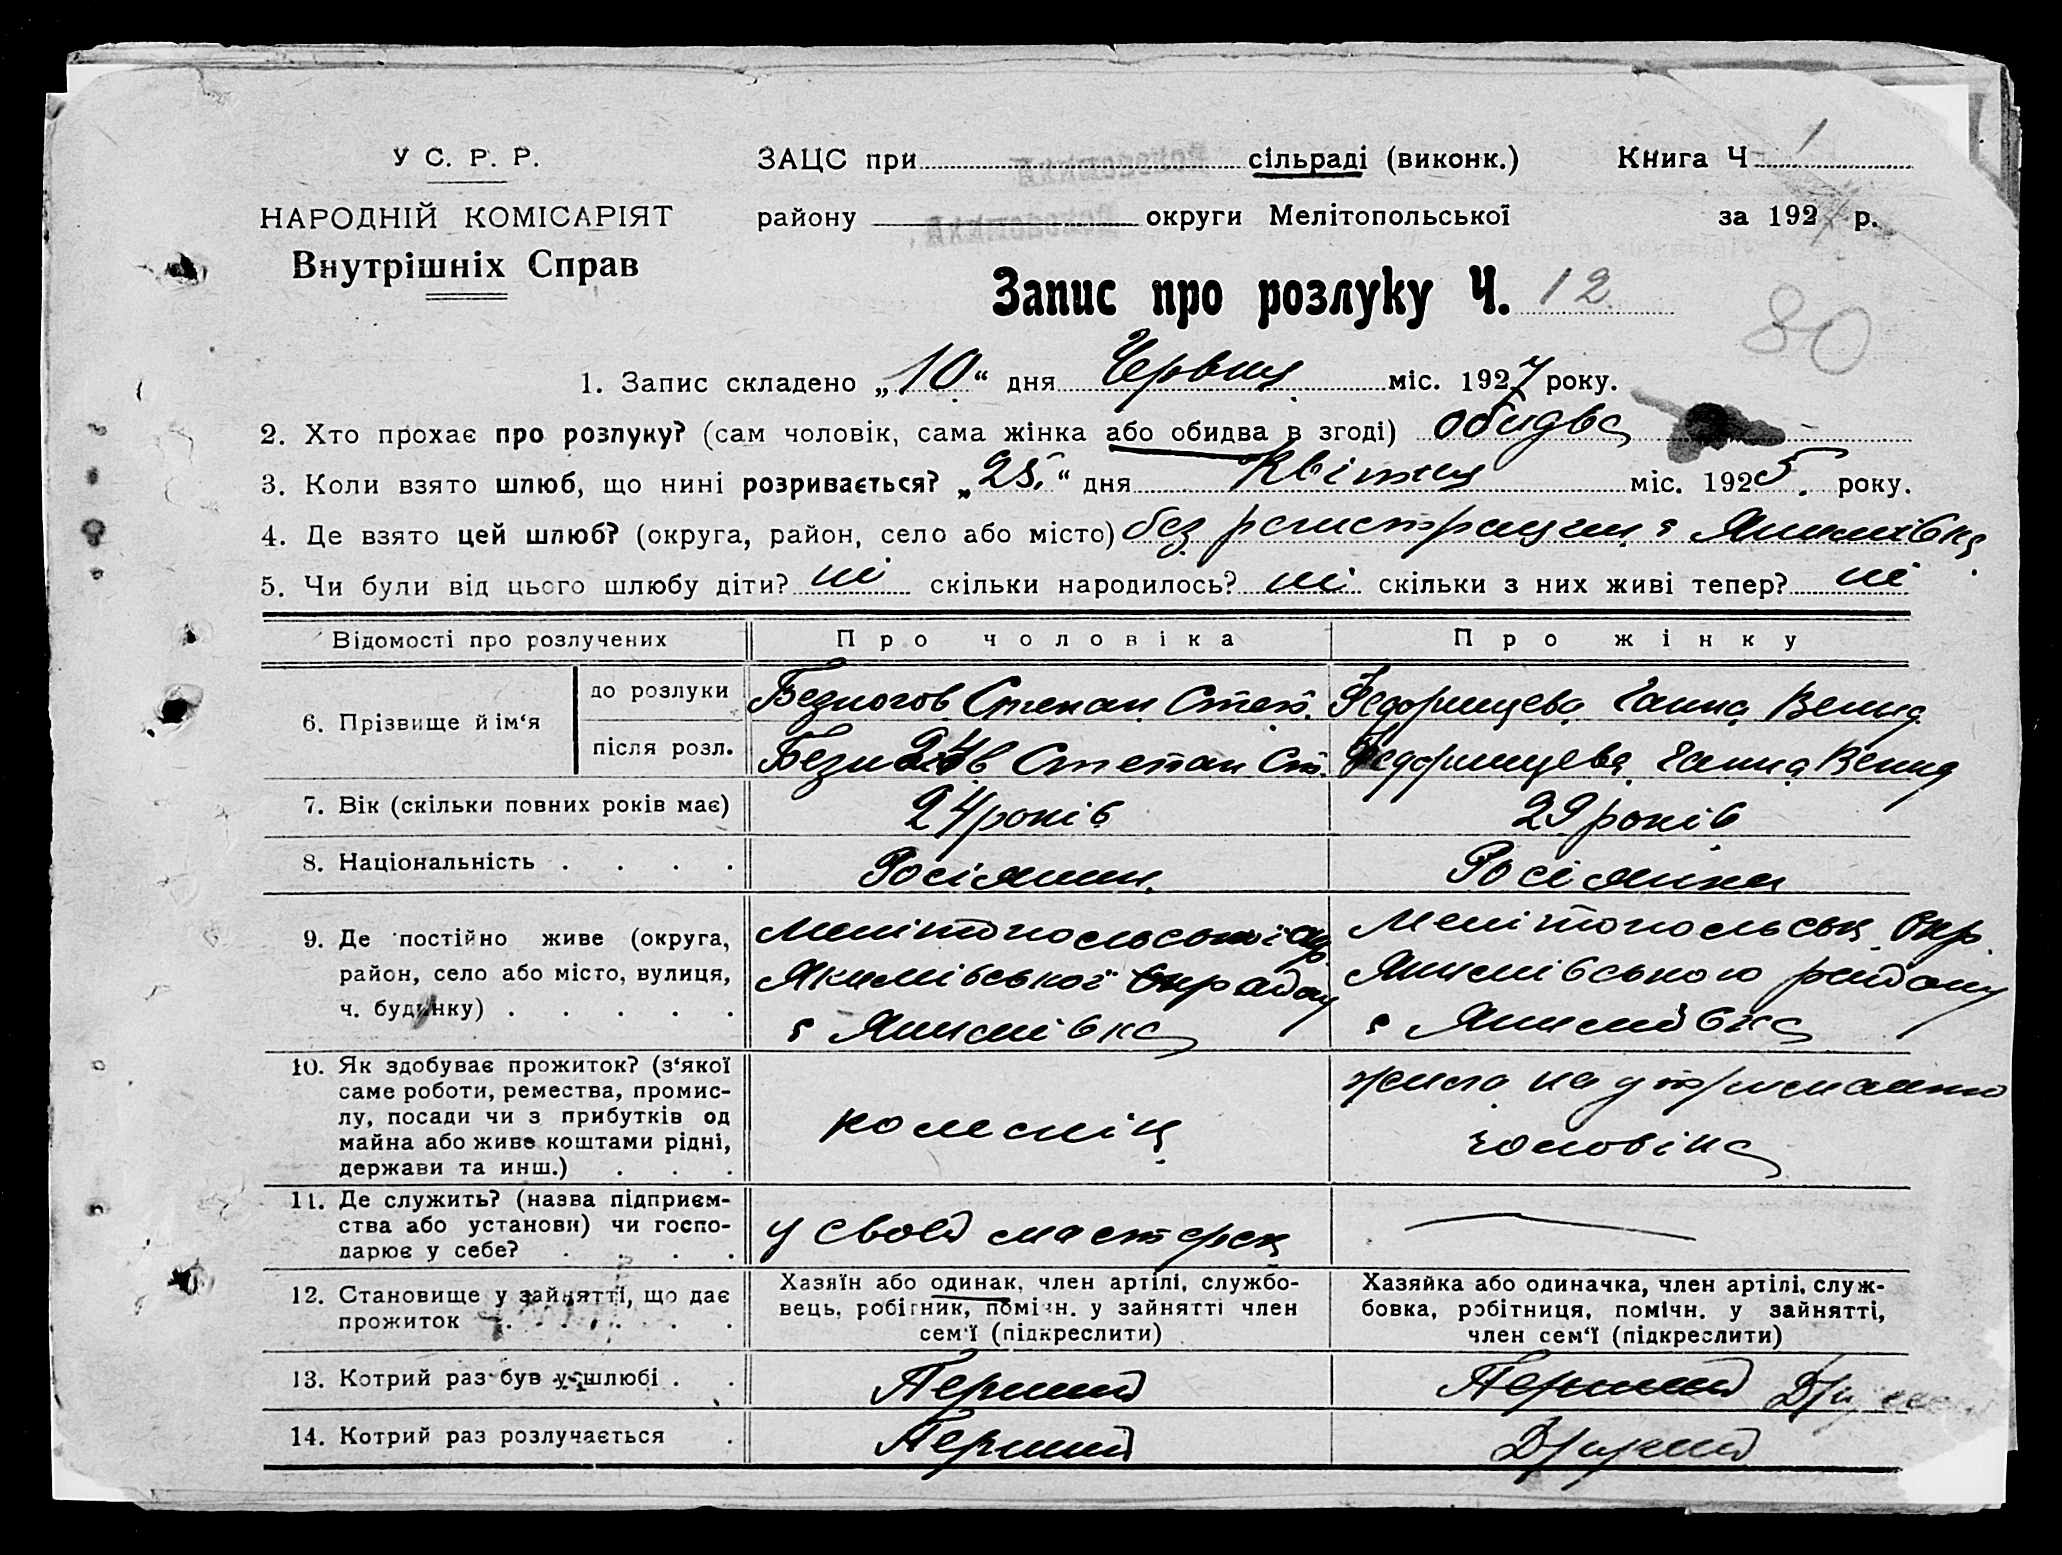 У С. Р. Р.
НАРОДНІЙ КОМІСАРІЯТ
Внутрішніх Справ
ЗАЦС при сільраді (виконк.)
району округи Мелітопольської
Книга Ч 1
за 1927 р.
Запис про розлуку Ч. 12
80
1. Запис складено „10“ дня Червня міс. 1927 року.
2. Хто прохає про розлуку? (сам чоловік, сама жінка або обидва в згоді) обидва
3. Коли взято шлюб, що нині розривається? „25“ дня Квітня міс. 1925 року.
4. Де взято цей шлюб? (округа, район, село або місто) без регистрации с Якимівка
5. Чи були від цього шлюбу діти? ні скільки народилось? ні скільки з них живі тепер? ні
Відомості про розлучених
Про чоловіка
Про жінку
6. Прізвище й ім‘я
до розлуки
Безногов Степан Степ.
Федоришцева Ганна
після розл.
Степан Ст.
Федоришцева Ганна
7. Вік (скільки повних років має)
24 років
29 років
8. Національність . . . .
Росіянин
Росіянка
9. Де постійно живе (округа,
район, село або місто, вулиця,
ч. будинку) . . . . .
Мелітопольської окр
Якимівської
с Якимівка
Мелітопольськ Окр
Якимівського району
с Якимівка
10. Як здобуває прожиток? (з‘якої
саме роботи, ремества, промис-
лу, посади чи з прибутків од
майна або живе коштами рідні,
держави та инш.) . . .
колесник
жила на утриманню
чоловіка
11. Де служить? (назва підприєм-
ства або установи) чи госпо-
дарює у себе? . . . .
у своєй мастерск
12. Становище у зайнятті, що дає
прожиток . . . . .
Хазяїн або одинак, член артілі, службо-
вець, робітник, помічн. у зайнятті член
сем‘ї (підкреслити)
Хазяйка або одиначка, член артілі, служ-
бовка, робітниця, помічн. у зайнятті,
член сем‘ї (підкреслити)
13. Котрий раз був у шлюбі . .
Перший
Перший
14. Котрий раз розлучається .
Перший
Другий